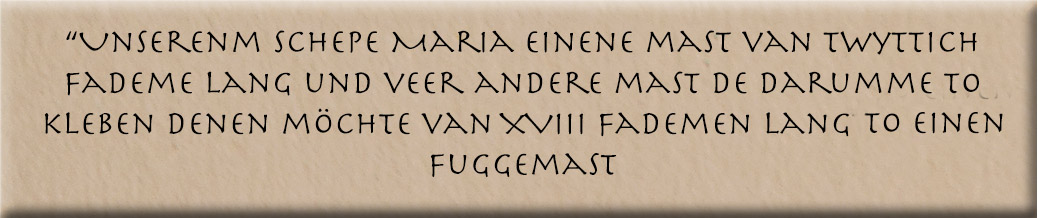 “Unserenm schepe Maria einene mast van twyttich
fademe lang und veer andere mast de darumme to
kleben denen möchte van XVIII fademen lang to einen
fuggemast